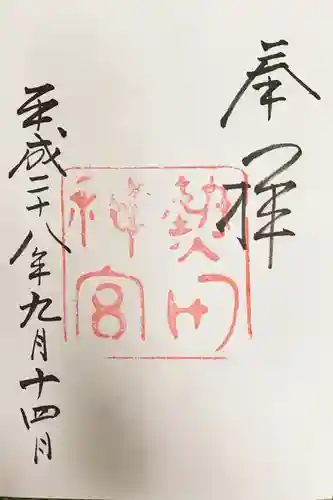 奉拝
熱田
神宮
平成二十八年九月十四月